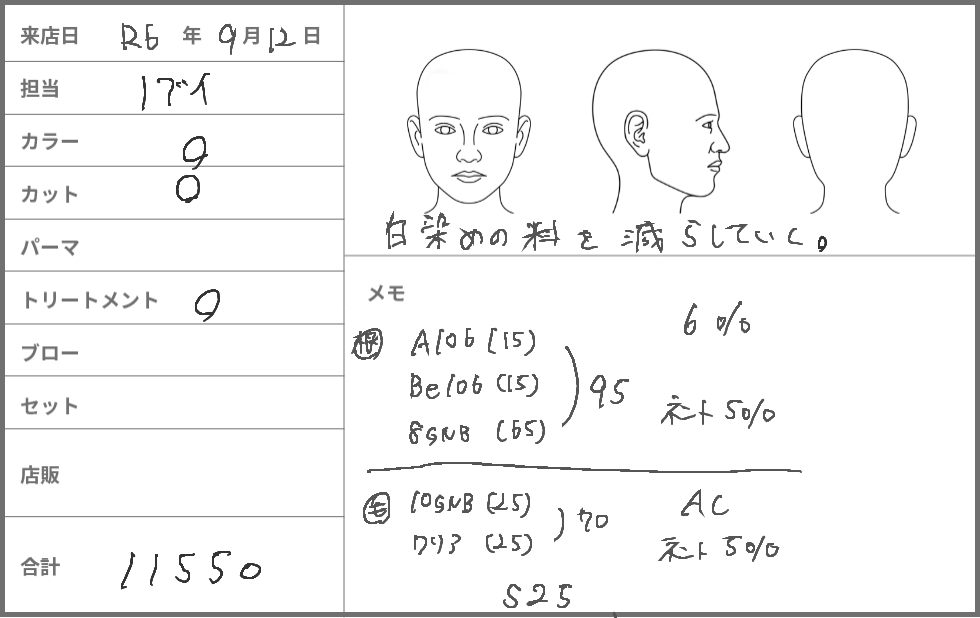 来店日 R6 年 9月12日
担当 1ブイ
カラー ○
カット ○
パーマ
トリートメント ○
ブロー
セット
店販
合計 11550
白染めの料を減らしていく。
メモ
根 A106 (15) 6%
Be106 (15) 95
8GNB (65) ネート50%
毛 10GNB (25) AC
クリア (25) 70
ネート50%
S25